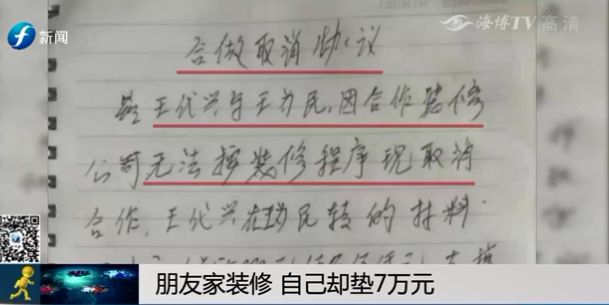 新闻
海博TV高清
合做取消协议
王代兴与王为民，因合作装修
公司无法按装修程序现取消
合作，王代兴在为民转的材料
朋友家装修 自己却垫7万元